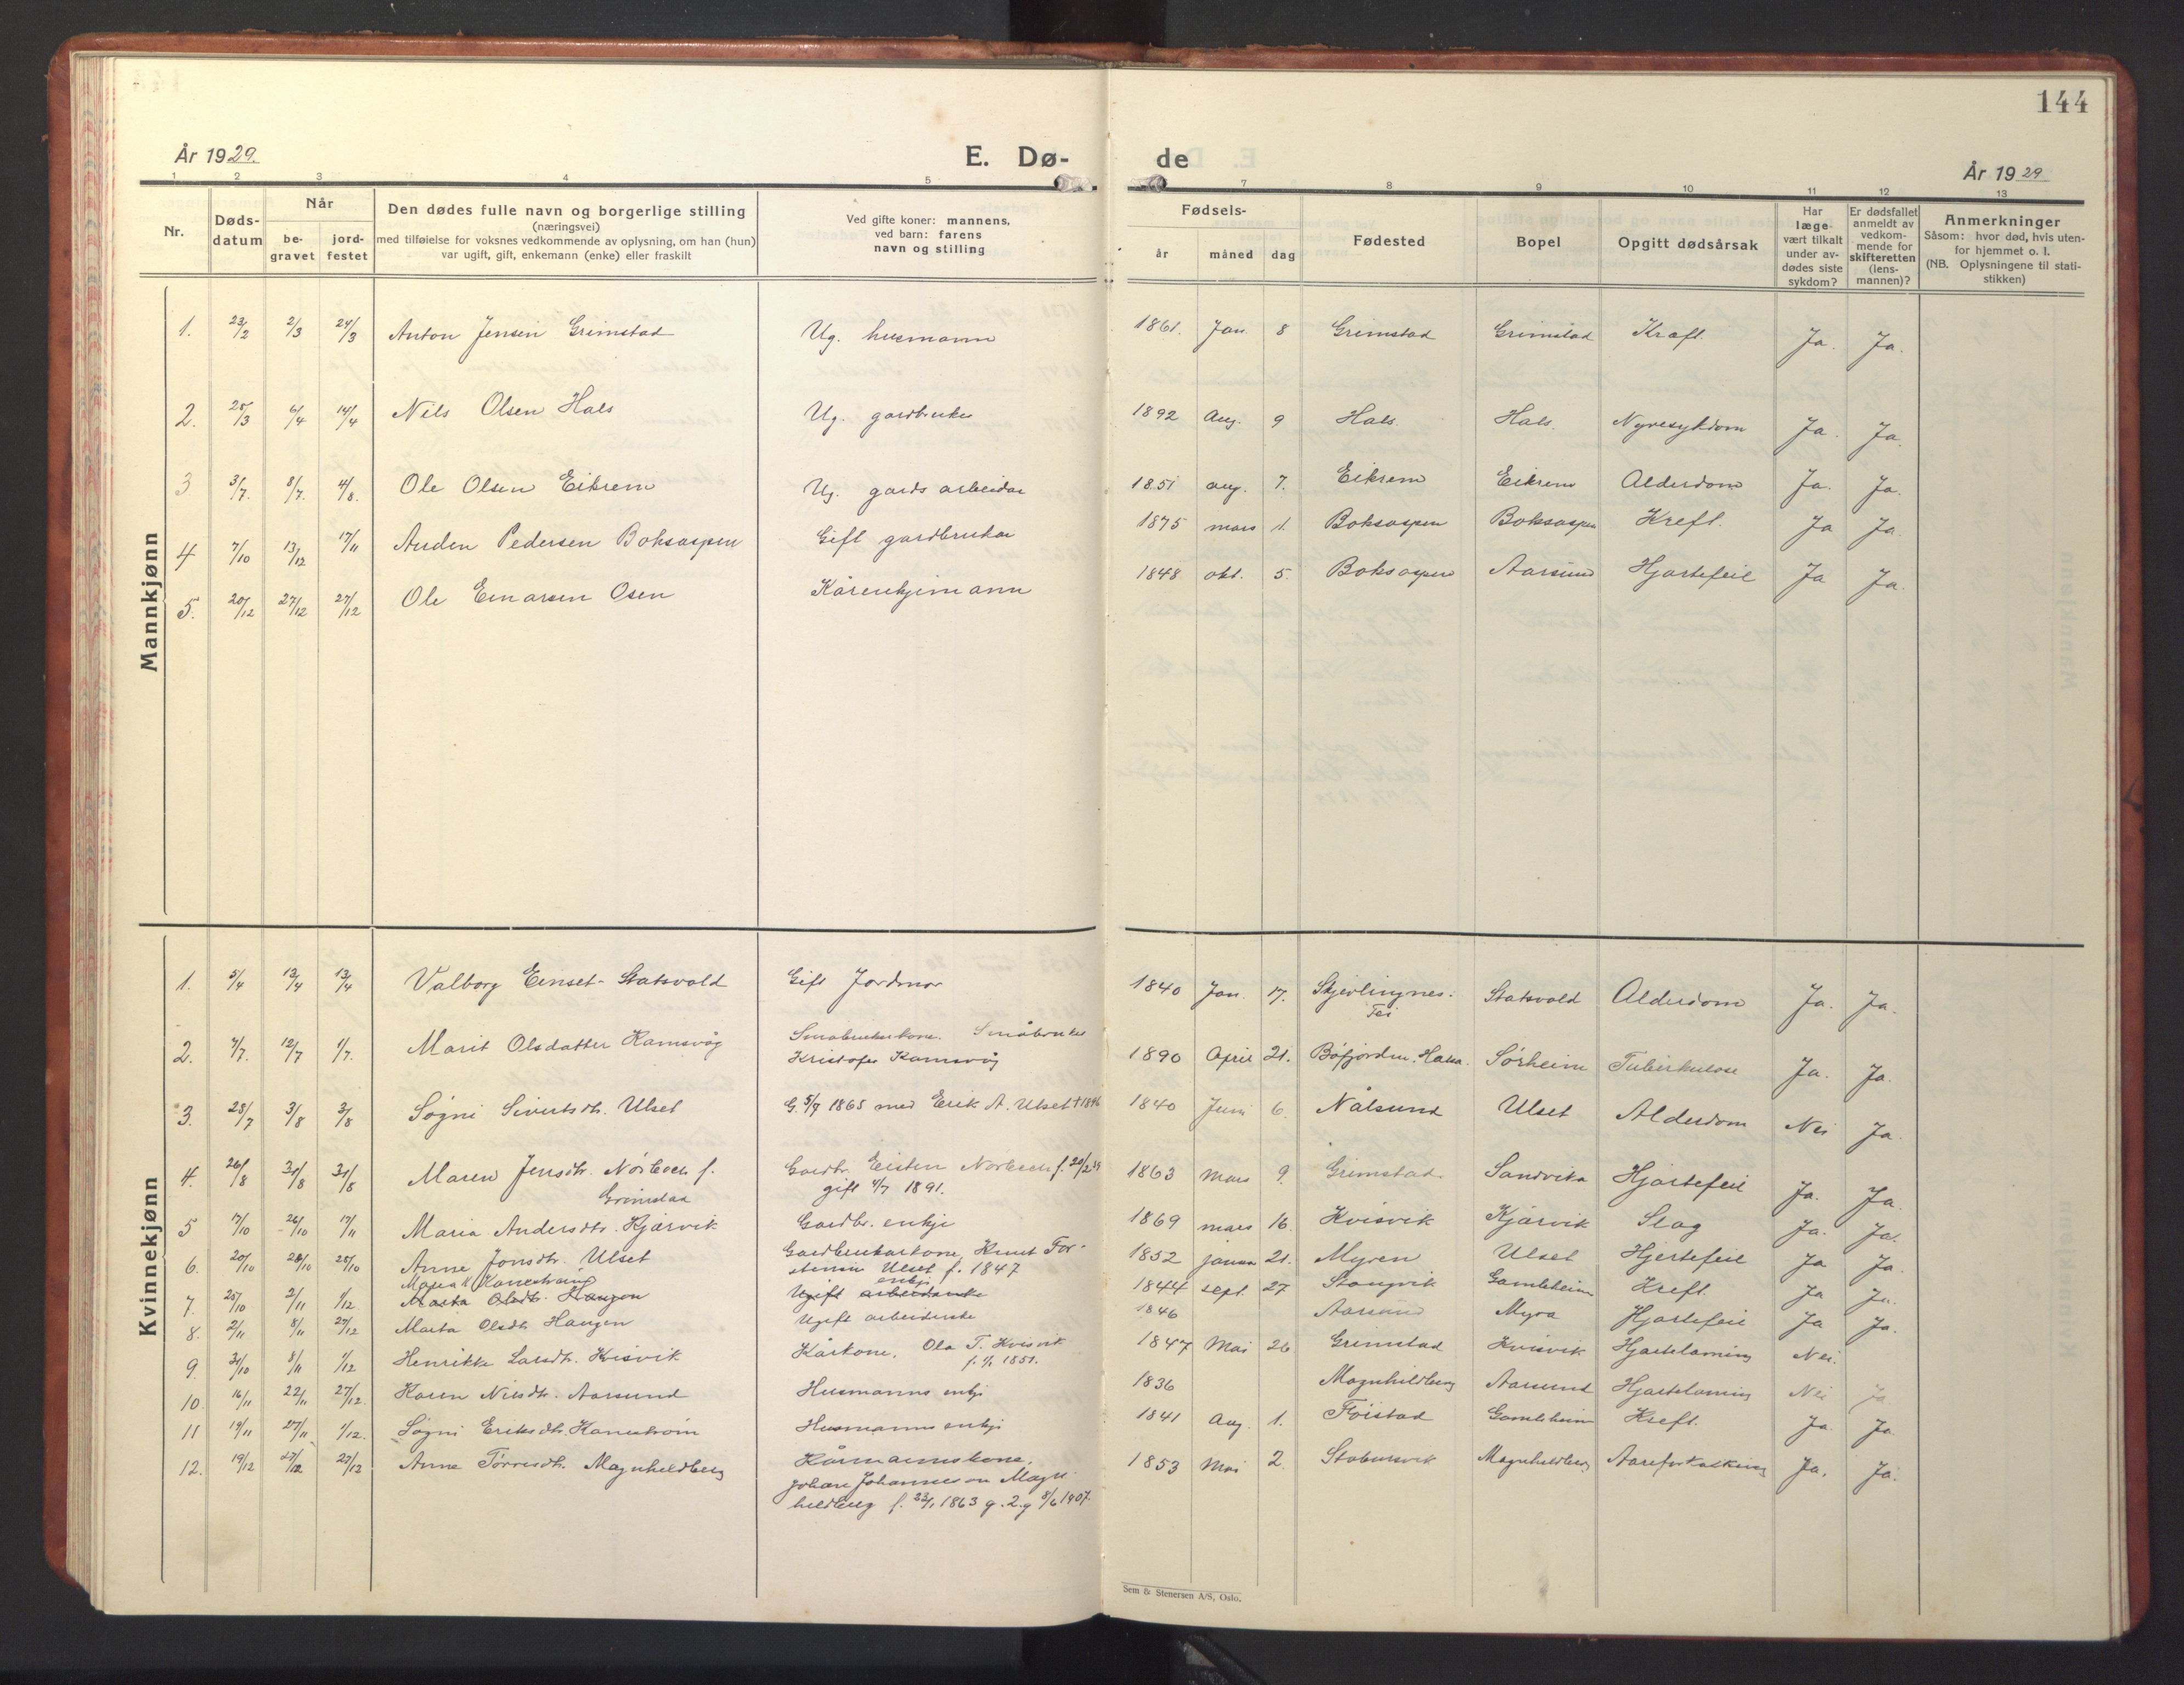 144
År 1929.
E. Dø-
de
År 1929
1 2 3 4 5 7 8 9 10 11 12 13
Nr.
Døds-
datum
Når
be-
gravet
jord-
festet
Den dødes fulle navn og borgerlige stilling
(næringsvei)
med tilføielse for voksnes vedkommende av oplysning, om han (hun)
var ugift, gift, enkemann (enke) eller fraskilt
Ved gifte koner: mannens,
ved barn: farens
navn og stilling
Fødsels-
år måned dag
Fødested
Bopel
Opgitt dødsårsak
Har
læge
vært tilkalt
under av-
dødes siste
sykdom?
Er dødsfallet
anmeldt av
vedkom-
mende for
skifteretten
(lens-
mannen)?
Anmerkninger
Såsom: hvor død, hvis uten-
for hjemmet o. l.
(NB. Oplysningene til stati-
stikken)
Mannkjønn
1. 23/2 2/3 24/3 Anton Jensen Grimstad Ug. husmann 1861. Jan. 8 Grimstad Grimstad Kræft. Ja. Ja.
2. 25/3 6/4 14/4 Nils Olsen Hals Ug. gardbruker 1892 Aug. 9 Hals. Hals. Nyresykdom Ja. Ja.
3 3/7. 8/7. 4/8. Ole Olsen Eikrem Ug. gards arbeidar 1851 aug. 7. Eikrem Eikrem Alderdom Ja. Ja.
4 7/10 13/12 17/11 Anden Pedersen Boksaspen Gift gardbrukar 1875 mars 1. Boksaspen Boksaspen Kreft. Ja Ja.
5. 20/12 27/12 27/12 Ole Einarsen Osen Kårenkjemann 1848 okt. 5. Boksaspen Aarsund Hjartefeil Ja Ja.
Kvinnekjønn
1. 5/4 13/4 13/4 Valborg Einset-Statsvold Gift Jordmor 1840 Jan. 17. Skjevlingnes. Statsvold Alderdom Ja. Ja.
2. 7/7. 12/7 1/7. Marit Olsdatter Kamsvåg Småbrukerkone. Småbruker
Kristofer Kamsvåg 1890 April 21. Bøfjorden. Halsa. Sørheim Tuberkulose Ja. Ja.
3. 28/7 3/8 3/8 Søgni Sivertsdt. Ulset G. 5/7 1865 med Erik A. Ulset † 1846 1840 Juni 6. Nålsund Ulset Alderdom Nei Ja.
4. 26/8 31/8 31/8 Maren Jensdtr. Nørbech f. Gardbr. Eisten Nørbech f. 20/2 39 1863 Mars 9. Grimstad Sandvika Hjartefeil Ja. Ja.
Grimstad gift 4/7 1891.
5 17/10 26/10 17/11 Maria Andersdtr. Kjårvik Gardbr. enkje 1869 mars 16. Kvisvik Kjårvik Slag Ja. Ja.
6. 20/10 26/10 25/10 Anne Jonsdtr. Ulset Gardbrukarkone, Knut Tor-
stensen Ulset f. 1847 1852 januar 21. Myren Ulset Hjertefeil Ja Ja.
Maria K Kanestrøm enkje
7. 25/10 2/11 1/12 Marta Olsdt. Haugen Ugift arbeidarske 1844 sept. 27 Stangvik Gamleheim Kreft. Ja Ja.
8. 2/11 8/11 27/12 Marta Olsdt. Haugen Ugift arbeiderske 1846 Aarsund Myra Hjartefeil Ja Ja.
9. 31/10 8/11 1/12 Henrikke Larsdt. Kvisvik Kårkone. Ola T. Kvisvik 1847 Mai 26 Grimstad Kvisvik Hjartelaming Nei.
f. 1/1 1851.
10. 16/11 22/11 27/12. Karen Nilsdtr. Aarsund Husmanns enkje 1836 Magnhildberg Aarsund Hjartelaming Nei Ja
11 19/11 27/11 1/12. Søgni Eriksdtr. Kanestrøm Husmanns enkje 1841 Aug. 1. Flöistad Gamleheim Kreft. Ja. Ja.
12. 19/12 27/12 27/12 Anne Torresdt. Magnhildberg Kårmannskone. 1853 Mai 2. Stabursvik Magnhildberg Aareforkalkning Ja. Ja.
Johan Johannesen Magn-
hildberg f. 23/1 1863 g. 2.g 8/6 1907.
Sem & Stenersen A/S, Oslo.